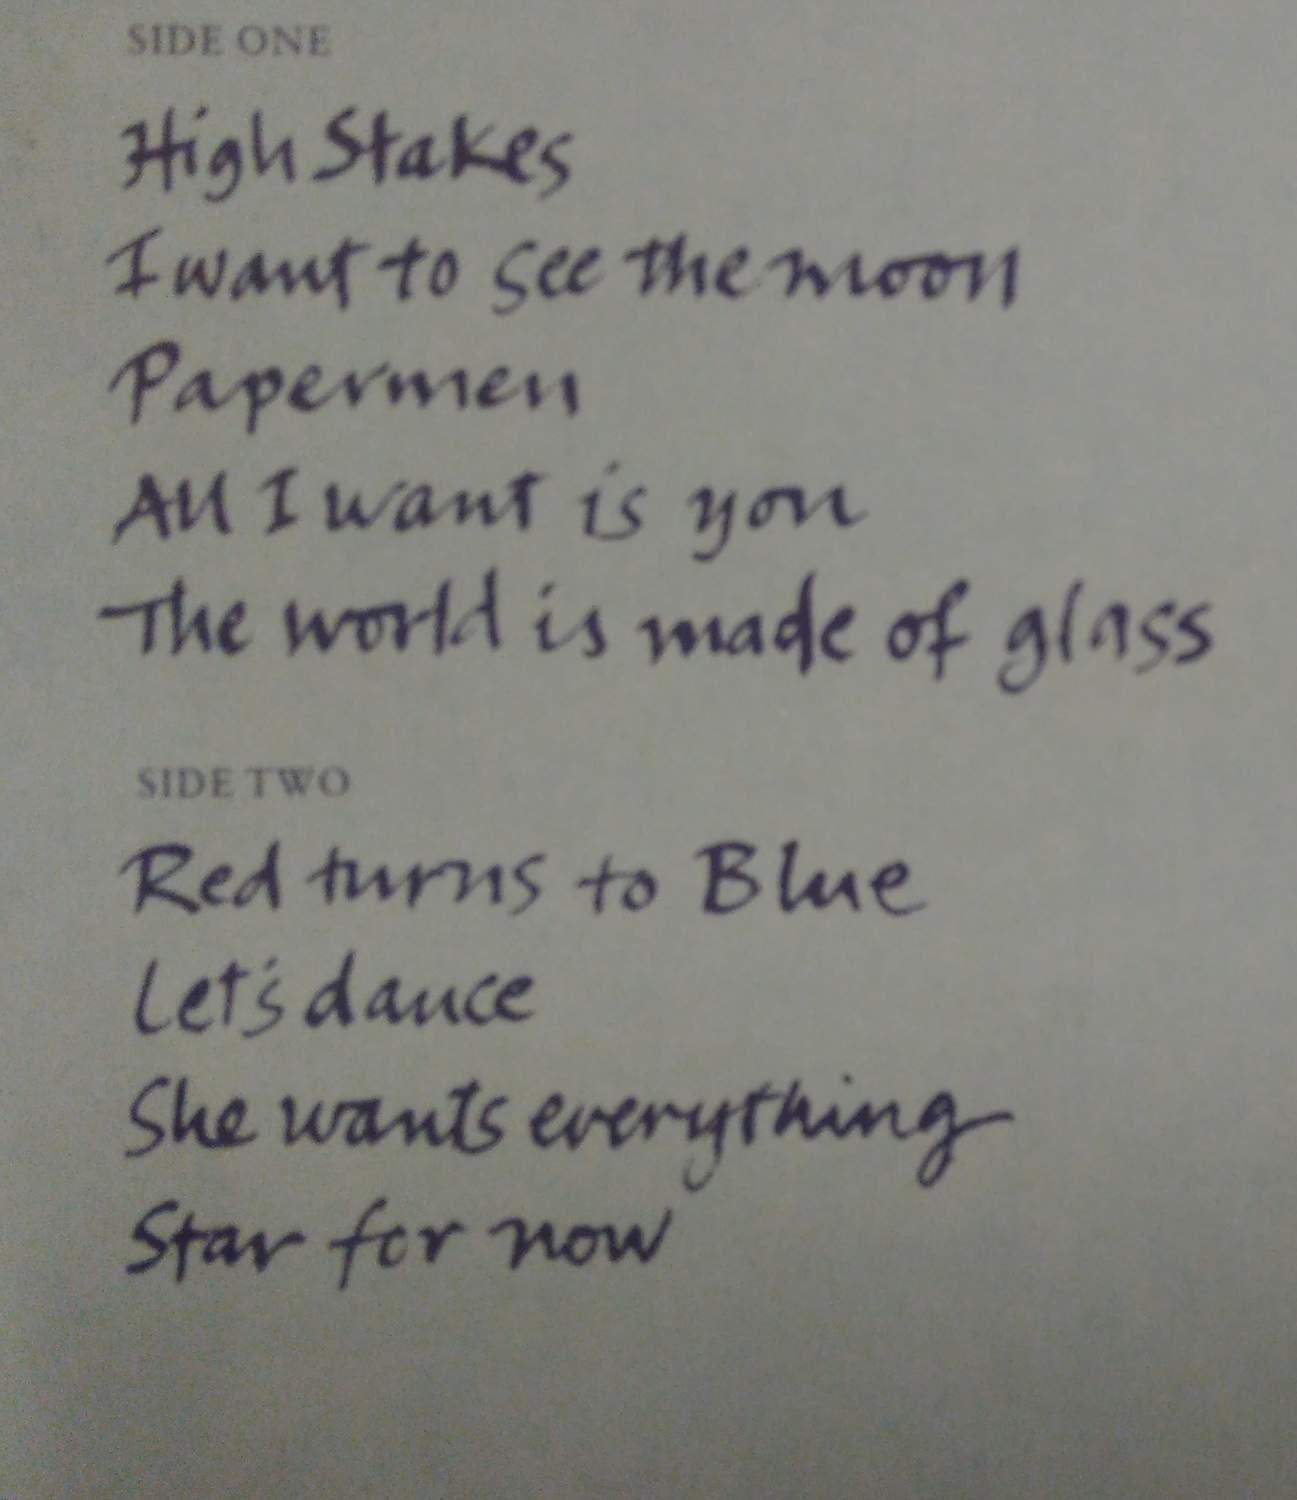 SIDE ONE
High Stakes
I want to see the moon
Papermen
All I want is you
The world is made of glass
SIDE TWO
Red turns to Blue
Let's dance
She wants everything
Star for now